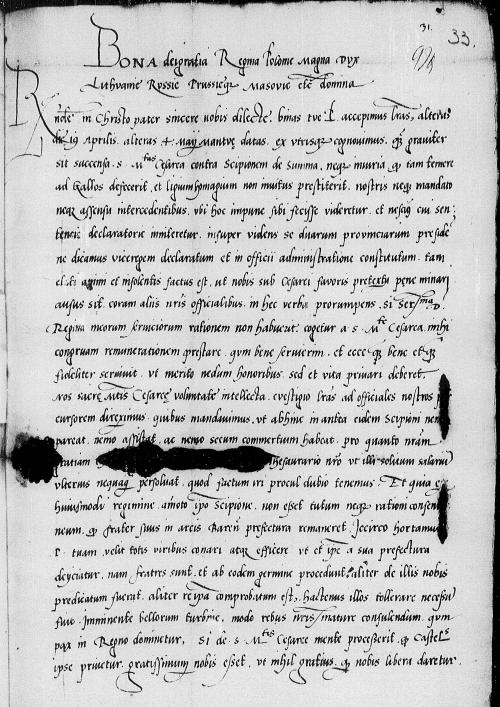 31.
33.
BONA dei gratia Regina Poloniæ Magna Dux
Lithuaniæ Russiæ Prussiæq Masoviæ etc domina
Rnde in Christo pater sincere nobis dilecte, binas tuæ P. accepimus lras, alteras
die 19 Aprilis, alteras 4 Maij Mantuæ datas, ex utrisque cognovimus, quam graviter
sit succensa S. Mtas Cesarea contra Scipionem de Summa, neque iniuria, quod tam temere
ad Gallos defecerit, et ligium homagium non invitus prestiterit, nostris neque mandato
neque assensu intercedentibus, ubi hoc impune sibi fecisse videretur, et cui sen
tentiæ declaratoriæ inniteretur, insuper videns se duarum provinciarum preside
ne dicamus viceregem declaratum et in officii administratione constitutum, tam
elati animi et insolentis factus est, ut nobis sub Cesarei favoris pretextu pene minari
ausus sit, coram aliis nris officialibus, in hec verba prorumpens, Si Serma D.
Regina meorum serviciorum rationem non habuerit, cogetur a S. Mte Cesarea, mihi
congruam remunerationem prestare, quum bene servierim, et ecce quam bene et quam
fideliter servivit, ut merito nedum honoribus, sed et vita privari deberet,
Nos sacræ Mtis Cesareæ voluntate intellecta, e vestigio lras ad officiales nostros per
cursorem direximus, quibus mandavimus, ut abhinc in antea eidem Scipioni nemo
pareat, nemo assistat, ac nemo secum commertium habeat, pro quanto nram
gratiam Thesaurario nro ut illi solitum salariu
ulterius nequaquam persoluat, quod factum iri procul dubio tenemus, Et quia ex
huiusmodi regimine amoto ipso Scipione, non esset tutum neque rationi consenta
neum, quod frater suus in arcis Baren prefectura remaneret, Iccirco hortamur
P. tuam velit totis viribus conari atque efficere ut et ipse a sua prefectura
deijciatur, nam fratres sunt, et ab eodem germine procedunt, aliter de illis nobis
predicatum fuerat, aliter re ipsa comprobatum est, hactenus illos tollerare necessum
fuit imminente bellorum turbine, modo rebus nris mature consulendum, quum
pax in Regno dominetur, Si de S. Mtis Cesareæ mente processerit, quod Castell.
ipse privetur, gratissimum nobis esset, ut nihil gratius, quod nobis libera daretur